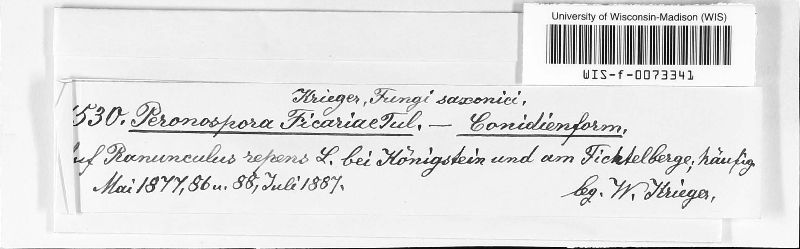 University of Wisconsin-Madison (WIS)
WIS-f-0073341
Krieger, Fungi saxonici.
530. Peronospora Ficariae Tul. — Conidienform,
uf Ranunculus repens L. bei Königstein und am Fichtelberge, häufig.
Mai 1877, 86 u. 88, Juli 1887.
leg. W. Krieger.